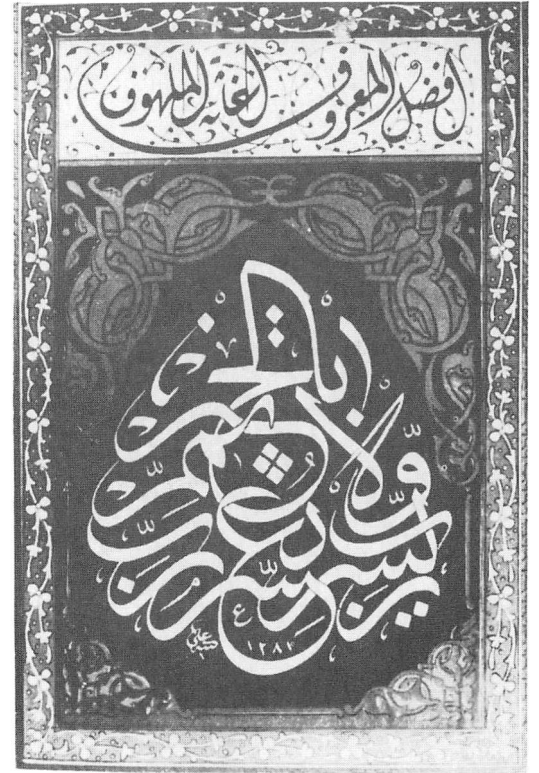 افضل المعروف اغاثة الملهوف
رب يسّر ولا تعسّر ربّ تمّم بالخير